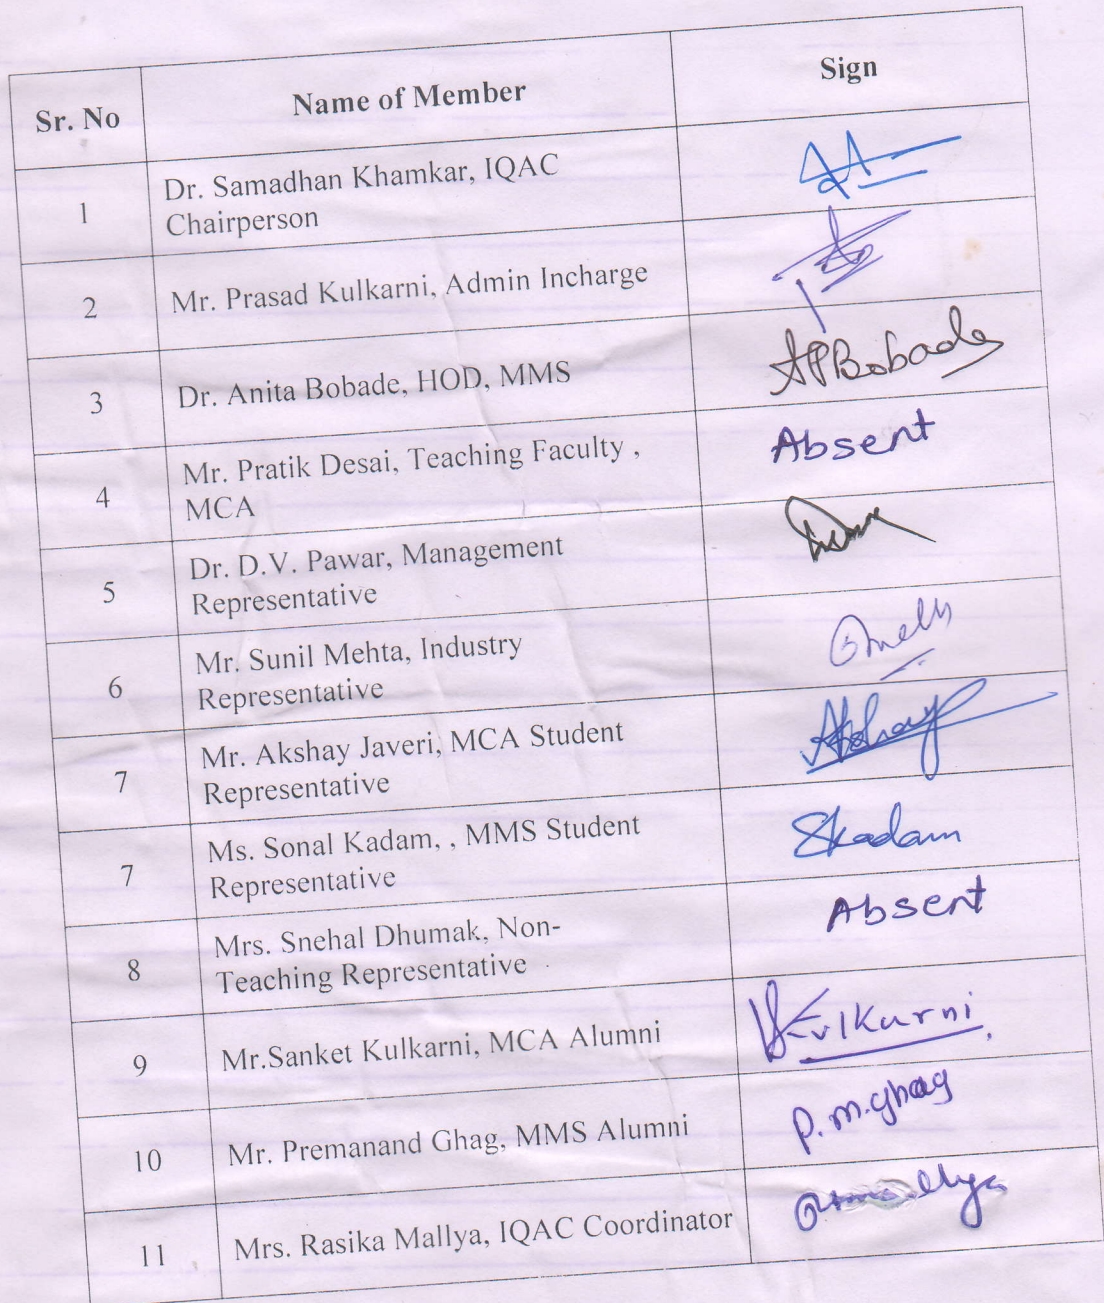 Sr. No Name of Member Sign
1 Dr. Samadhan Khamkar, IQAC
Chairperson
2 Mr. Prasad Kulkarni, Admin Incharge
3 Dr. Anita Bobade, HOD, MMS APBobade
4 Mr. Pratik Desai, Teaching Faculty , Absent
MCA
5 Dr. D.V. Pawar, Management
Representative
6 Mr. Sunil Mehta, Industry
Representative
7 Mr. Akshay Javeri, MCA Student Akshay
Representative
7 Ms. Sonal Kadam, , MMS Student Skadam
Representative
8 Mrs. Snehal Dhumak, Non- Absent
Teaching Representative
9 Mr.Sanket Kulkarni, MCA Alumni
10 Mr. Premanand Ghag, MMS Alumni P.M.Ghag
11 Mrs. Rasika Mallya, IQAC Coordinator